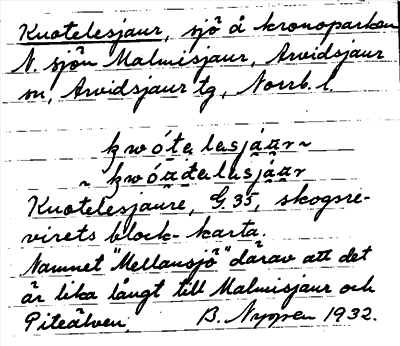 Kuotelesjaur, sjö å kronoparken
N. sjön Malmisjaur, Arvidsjaur
sn, Arvidsjaur tg, Norrb. l.
ḱwóte̮le̮sjáa̮r ~
~ ḱwóa̮đa̮le̮sjáa̮r
Kuotelesjaure, G. 35, skogsre-
virets block-karta.
Namnet "Mellansjö" därav att det
är lika långt till Malmisjaur och
Piteälven. B. Nygren 1932.